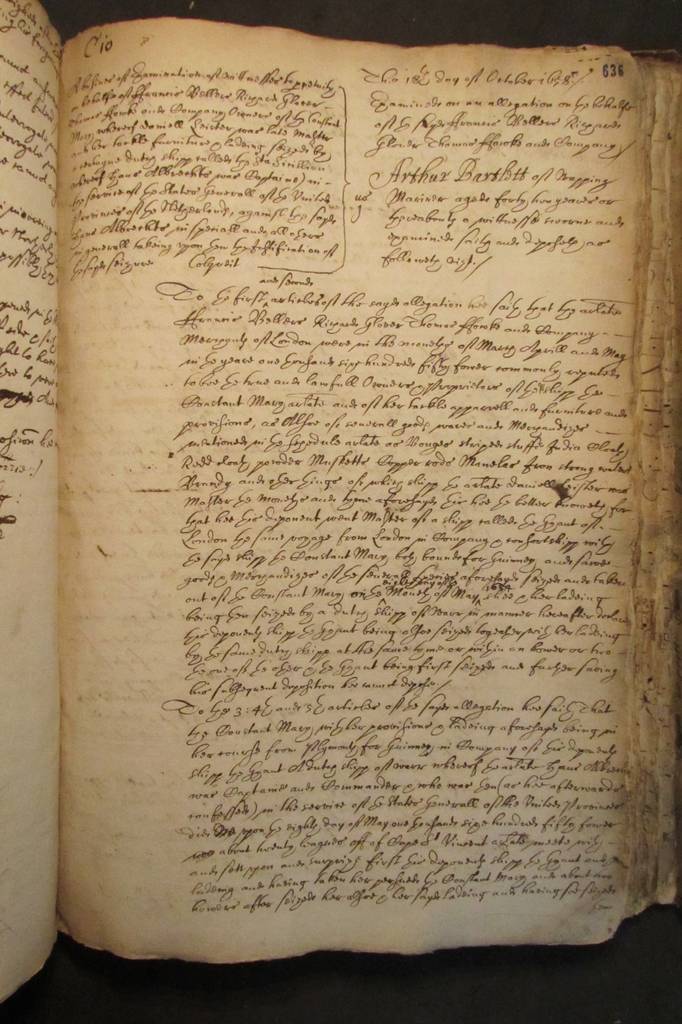 C 10
636
A business of Examination of witnesses to perpetuity
on behalfe of Francis Bellers Richard Glover
Thomas ffowke and Company Owners of the Constant
Mary whereof daniell Leister was late Master
and her tackle furniture & ladeing seized by
a dutch shipp called the
whereof Hans Albrechts was Captaine) in
the service of the States Generall of the United
Provinces of the Netherlands, against the sayd
Hans Albrechts in speciall and all others
in generall takeing upon them the Justification of
the sayd seizure Colgreit
The 18th day of October 1658 /
Examined on an allegation on the behalfe
of the sayd ffrancis Bellers Richard
Glover Thomas ffowke and Company /
Arthur Bartlett of Wapping
Mariner aged forty two yeares or
thereabouts a wittnesse sworne and
examined saith and deposeth as
followeth vizt. /
and second
To the first articles of the sayd allegation hee saith that the arlate
ffrancis Bellers Richard Glover Thomas ffowke and Company
Merchants of London were in the moneths of March Aprill and May
in the yeare one thousand sixe hundred fifty fower commonly reputed
to bee the true and lawfull Owners & Proprietors of the shipp the
Constant Mary arlate and of her tackle apparrell and furniture and
provisions, as alsoe of severall goods wares and Merchandizes
mentioned in the schedule arlate as striped stuffs India Cloath
Redd cloath powder Musketts Copper rods Manelas Iron strong waters
Brandy and other things of which shipp the arlate daniell Leister was
Master the moneths and tyme aforesayd this hee the better knoweth for
that hee this deponent went Master of a shipp called the Gyant of
London the same voyage from London in Company & consortshipp with
the sayd shipp the Constant Mary both bound for Guinney, and sawe
goods & Merchandizes of the severall species aforesayd seized and taken
out of the Constant Mary in the Moneth of May 1654 shee & her ladeing
being then seized by a dutch shipp of Warr in manner hereafter declared
this deponents shipp the Gyant being alsoe seized together with her ladeing
by the same dutch shipp at the same tyme or within an hower or two
the one of the other & the Gyant being first seized and further saving
his subsequent deposition hee cannot depose. /
To the 3: 4th and 5th articles of the sayd allegation hee saith That
the Constant Mary with her provisions & ladeing aforesayd being in
her course from Plymouth for Guinney in Company of this deponents
shipp the Gyant A dutch shipp of warr whereof the arlate Hans Albrechts
was Captaine and Commander & who was then (as hee afterwards
confessed) in the service of the States Generall of the United Provinces
did upon the eighth day of May one thousand sixe hundred fifty fower
about twenty leagues off of Cape St Vincent arlate meete with
and sett upon and surprize first this deponents shipp the Gyant and her
ladeing and having taken her pursued the Constant Mary and about two
howers after seized her alsoe & her sayd ladeing and having soe seized